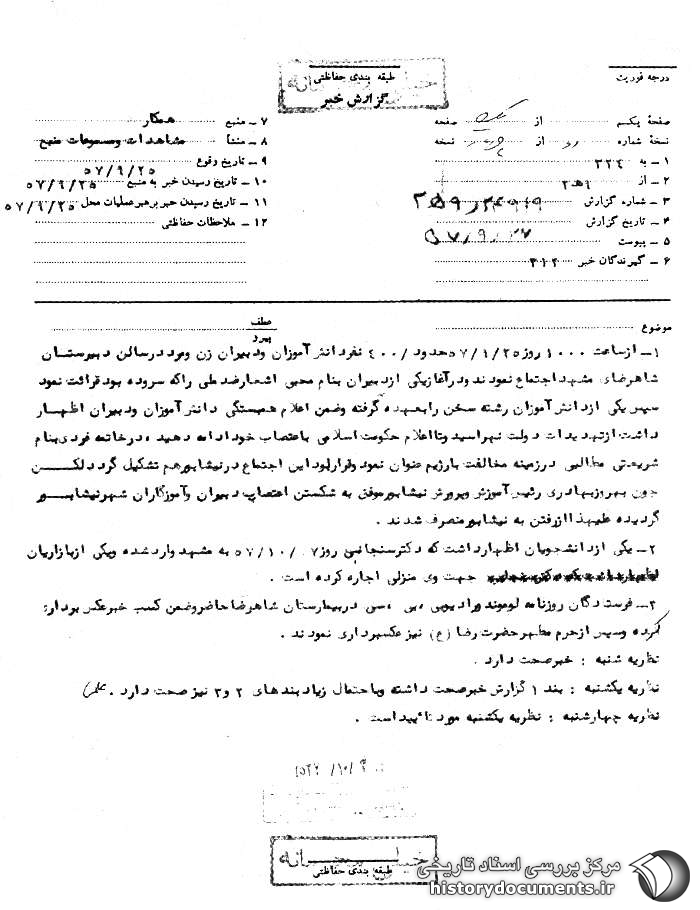 درجه فوریت
طبقه بندی حفاظتی
خیلی محرمانه
گزارش خبر
صفحهٔ یکم از یک صفحه
نسخهٔ شماره از نسخه
۱ – به ۳۲۴
۲ – از ۳۵۹
۳ – شماره گزارش
۴ – تاریخ گزارش
۵ – پیوست
۶ – گیرندگان خبر ۳۱۲
۷ – منبع همکار
۸ – منشأ مشاهدات ومسموعات منبع
۹ – تاریخ وقوع ۵۷/۹/۲۵
۱۰ – تاریخ رسیدن خبر به منبع ۵۷/۹/۲۵
۱۱ – تاریخ رسیدن خبر برهبر عملیات محل ۵۷/۹/۲۵
۱۲ – ملاحظات حفاظتی
موضوع
عطف
پیرو
۱– ازساعت ۱۰۰۰ روز ۵۷/۹/۲۵ حدود ۴۰۰ نفردانش آموزان ودبیران زن ومرد درسالن دبیرستان
شاهرضای مشهد اجتماع نمودند ودرآغازیکی ازدبیران بنام محبی اشعارضدملی راکه سروده بود قرائت نمود
سپس یکی ازدانش آموزان رشته سخن رابعهده گرفته وضمن اعلام همبستگی دانش آموزان ودبیران اظهار
داشت ازتهدیدات دولت نهراسید وتااعلام حکومت اسلامی باعتصاب خود ادامه دهید ، درخاتمه فردی بنام
شریعتی مطالبی درزمینه مخالفت بارژیم عنوان نمود وقراربود این اجتماع درنیشابورهم تشکیل گردد لکن
چون بهروزبهادری رئیس آموزش وپرورش نیشابورموفق به شکستن اعتصاب دبیران وآموزگاران شهرنیشابور
گردیده علیهذا ازرفتن به نیشابور منصرف شدند .
۲– یکی ازدانشجویان اظهارداشت که دکترسنجابی روز ۵۷/۱۰/۰۷ به مشهد وارد شده ویکی ازبازاریان
جهت وی منزلی اجاره کرده است .
۳– فرستادگان روزنامه لوموند ورادیوبی ، بی ، سی دربیمارستان شاهرضا حاضروضمن کسب خبرعکس برداری
کرده وسپس ازحرم مطهرحضرت رضا (ع) نیز عکسبرداری نمودند .
نظریه شنبه : خبرصحت دارد .
نظریه یکشنبه : بند ۱ گزارش خبرصحت داشته وباحتمال زیاد بندهای ۲ و ۳ نیز صحت دارد .
نظریه چهارشنبه : نظریه یکشنبه مورد تائید است .
خیلی محرمانه
طبقه بندی حفاظتی
مرکز بررسی اسناد تاریخی
historydocuments.ir